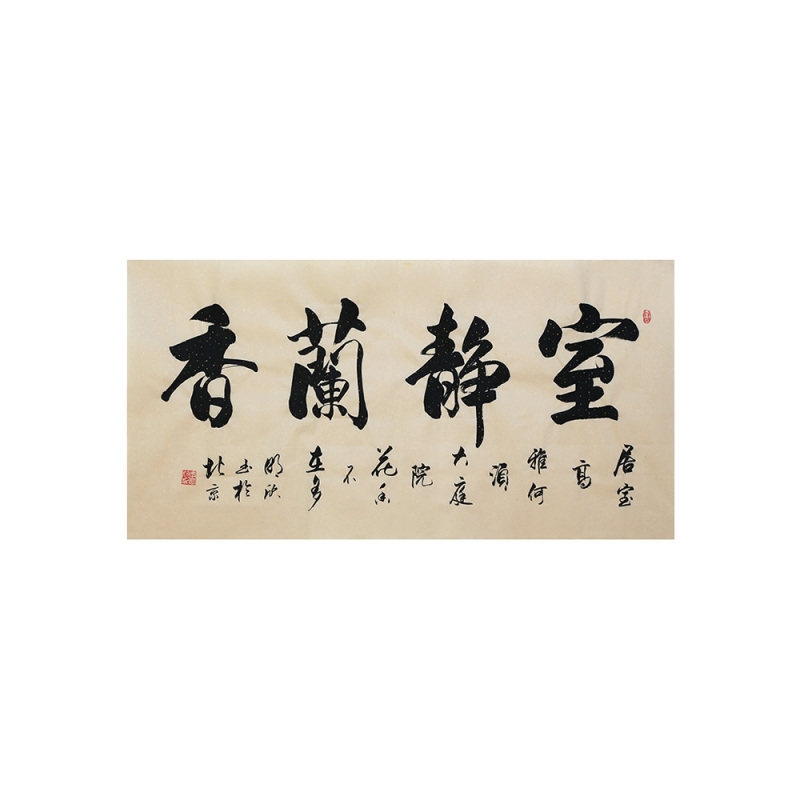 室靜蘭香
居室
高
雅何
須
大庭
院
花香
不
在多
明洪
书於
北京